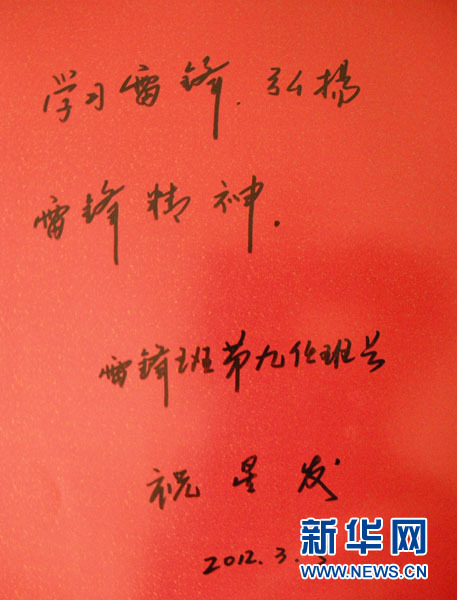 学习雷锋.弘揚
雷锋精神.
雷锋班第九任班长
祝星发
2012.3.
新华网
WWW.NEWS.CN